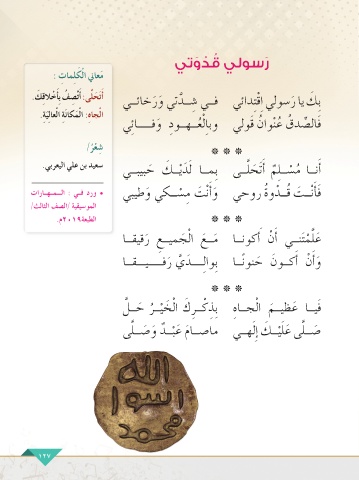 رَسولي قُدْوَتي
بِكَ يا رَسولي اِقْتِدائي فـي شِـدَّتي وَرَخائـي
فَالصِّدقُ عُنْوانُ قَولي وبِالْعُـهـودِ وَفــائِي
* * *
أَنـا مُسْـلِـمٌ أَتَحَلَّـى بِمـا لَدَيْـكَ حَبيبـي
فَأَنْــتَ قُــدْوَةُ روحي وَأَنْتَ مِسْكي وَطيبي
* * *
عَلَّمْتَنـي أَنْ أَكونـا مَـعَ الْجَميـعِ رَقيقـا
وَأَنْ أَكـونَ حَنونًـا بِوالِـدَيَّ رَفـيـقـا
* * *
فَيـا عَظيـمَ الْجـاهِ بِذِكْـرِكَ الْخَيْـرُ حَـلَّ
صَـلَّى عَلَيْـكَ إِلَهـي ماصـامَ عَبْـدٌ وَصَـلَّى
مَعاني الْكَلِماتِ :
أَتَحَلَّى: أَتَّصِفُ بِأَخْلاقِكَ.
الْجاه: الْمَكانَة الْعالِيَة.
شِعْرُ/
سعيد بن علي اليعربي.
• ورد فـي : الـمـهـارات
الموسيقية /الصف الثالث/
الطبعة٢٠١٩م.
الله
رسول
محمد
١٢٧